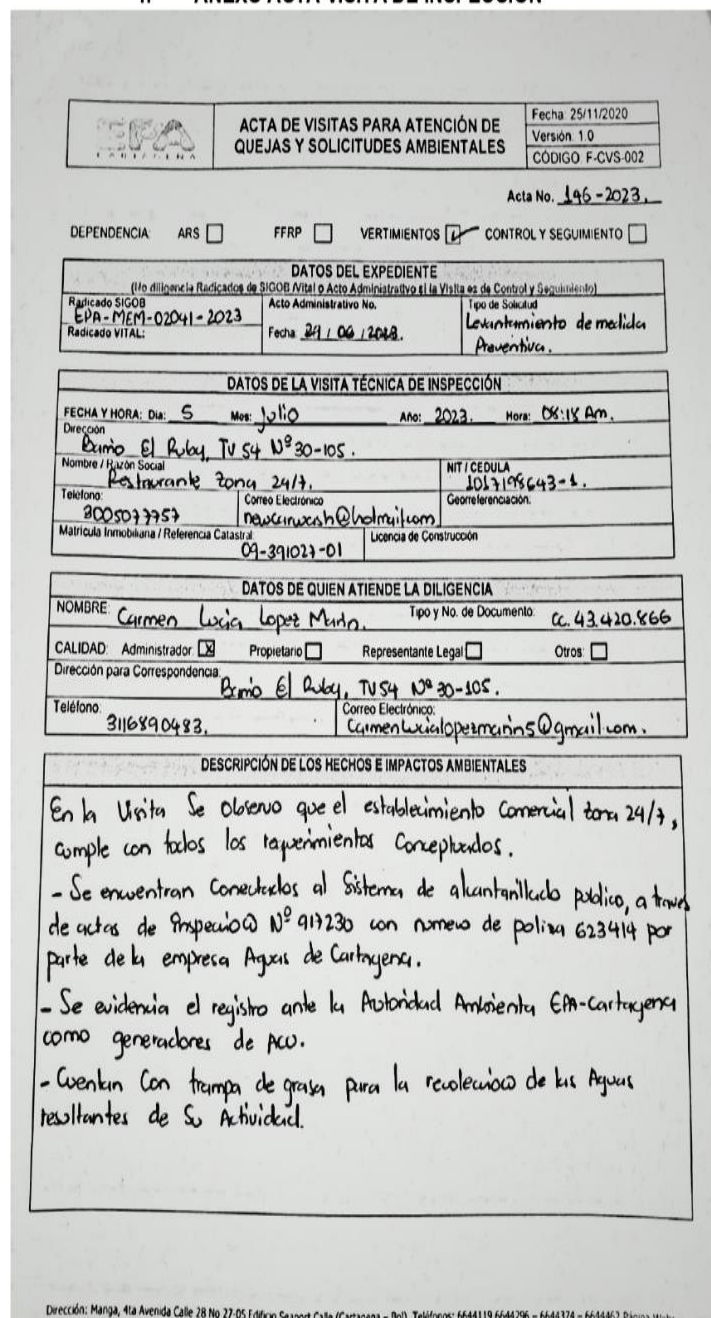 ANEXO ACTA VISITA DE INSPECCIÓN
EPA
CARTAGENA
ACTA DE VISITAS PARA ATENCIÓN DE
QUEJAS Y SOLICITUDES AMBIENTALES
Fecha: 25/11/2020
Versión: 1.0
CÓDIGO: F-CVS-002
Acta No. 196-2023.
DEPENDENCIA: ARS FFRP VERTIMIENTOS CONTROL Y SEGUIMIENTO
DATOS DEL EXPEDIENTE
(No diligencie Radicados de SIGOB /Vital o Acto Administrativo si la Visita es de Control y Seguimiento)
Radicado SIGOB
EPA-MEM-02041-2023
Radicado VITAL:
Acto Administrativo No.
Fecha: / 06 /
Tipo de Solicitud
Levantamiento de medida
Preventiva.
DATOS DE LA VISITA TÉCNICA DE INSPECCIÓN
FECHA Y HORA: Dia: 5 Mes: Julio Año: 2023. Hora: 08:18 Am.
Dirección
Barrio El Ruby, TV 54 Nº 30-105.
Nombre / Razón Social
Restaurante zona 24/7.
NIT / CEDULA
1017198643-1.
Teléfono:
3005077757
Correo Electrónico
@hotmail.com
Georreferenciación:
Matricula Inmobiliaria / Referencia Catastral:
09-391027-01
Licencia de Construcción
DATOS DE QUIEN ATIENDE LA DILIGENCIA
NOMBRE: Carmen Lucia Lopez Marin. Tipo y No. de Documento: cc. 43.420.866
CALIDAD: Administrador X Propietario Representante Legal Otros:
Dirección para Correspondencia:
Barrio El Ruby, TV 54 Nº 30-105.
Teléfono:
3116890483.
Correo Electrónico:
Carmenlucialopezmarin5@gmail.com.
DESCRIPCIÓN DE LOS HECHOS E IMPACTOS AMBIENTALES
En la Visita Se Observo que el establecimiento Comercial zona 24/7,
cumple con todos los requerimientos Conceptuados.
- Se encuentran Conectados al Sistema de alcantarillado publico, a traves
de actas de Inspeccion Nº 917230 con numero de poliza 623414 por
parte de la empresa Aguas de Cartagena.
- Se evidencia el registro ante la Autoridad Ambienta EPA-Cartagena
como generadores de ACU.
- Cuentan Con trampa de grasa para la recoleccion de las Aguas
resultantes de Su Actividad.
Dirección: Manga, 4ta Avenida Calle 28 No 27-05 Edificio Seaport Calle (Cartagena – Bol). Teléfonos: 6644119 6644296 – 6644374 – 6644462 Página Web: